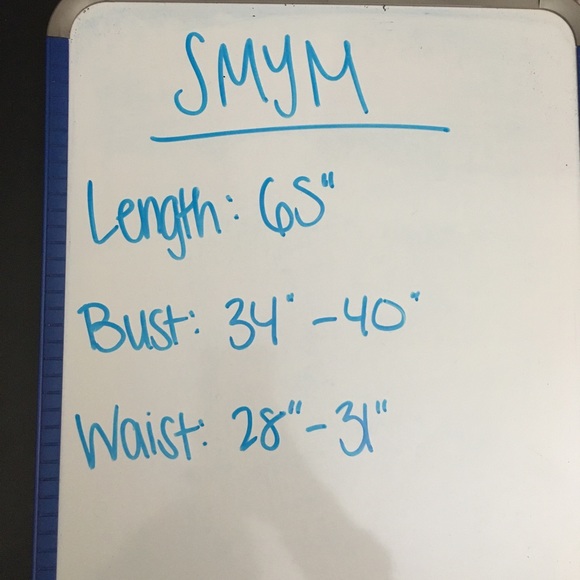 SMYM
Length: 65"
Bust: 34" - 40"
Waist: 28" - 31"